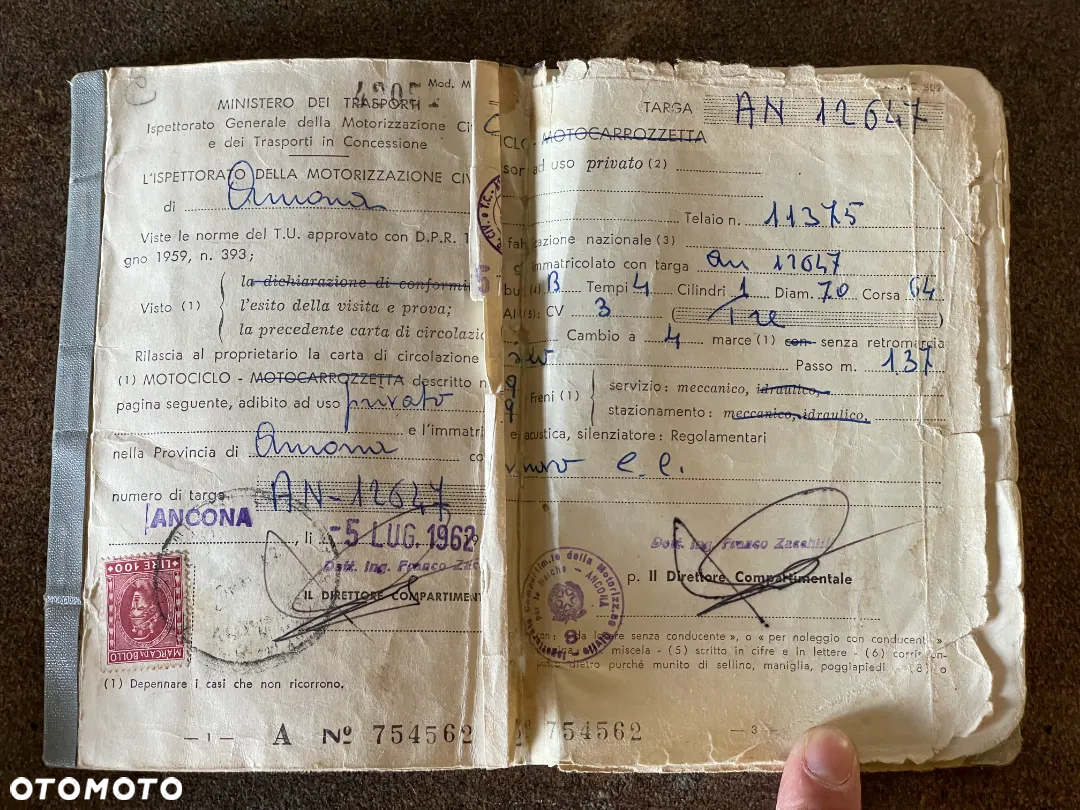 4205
Mod. M
MINISTERO DEI TRASPORTI
Ispettorato Generale della Motorizzazione Civ
e dei Trasporti in Concessione
L'ISPETTORATO DELLA MOTORIZZAZIONE CIV
di Ancona
Viste le norme del T.U. approvato con D.P.R. 1
gno 1959, n. 393;
la dichiarazione di conformi
Visto (1) l'esito della visita e prova;
la precedente carta di circolazio
Rilascia al proprietario la carta di circolazione
(1) MOTOCICLO - MOTOCARROZZETTA descritto n
pagina seguente, adibito ad uso privato
e l'immatri
nella Provincia di Ancona co
numero di targa AN-12647
ANCONA, li -5 LUG. 1962
Dott. Ing. Franco Zac
IL DIRETTORE COMPARTIMENT
LIRE 100
MARCA DA BOLLO
(1) Depennare i casi che non ricorrono.
- 1 - A Nº 754562
TARGA AN 12647
CLO - MOTOCARROZZETTA
ad uso privato (2)
Telaio n. 11375
fab azione nazionale (3)
immatricolato con targa An 12647
B Tempi 4 Cilindri 1 Diam. 70 Corsa 64
CV 3 (Tre)
Cambio a 4 marce (1) con senza retromarcia
Passo m. 1.37
Freni (1) servizio: meccanico, idraulico,
stazionamento: meccanico, idraulico,
e acustica, silenziatore: Regolamentari
Dott. Ing. Franco Zacchilli
p. Il Direttore Compartimentale
ANCONA
8
on: «da locare senza conducente», o «per noleggio con conducent »
miscela - (5) scritto in cifre e in lettere - (6) corris en-
dietro purché munito di sellino, maniglia, poggiapiedi (8) o
Nº 754562 - 3 -
OTOMOTO